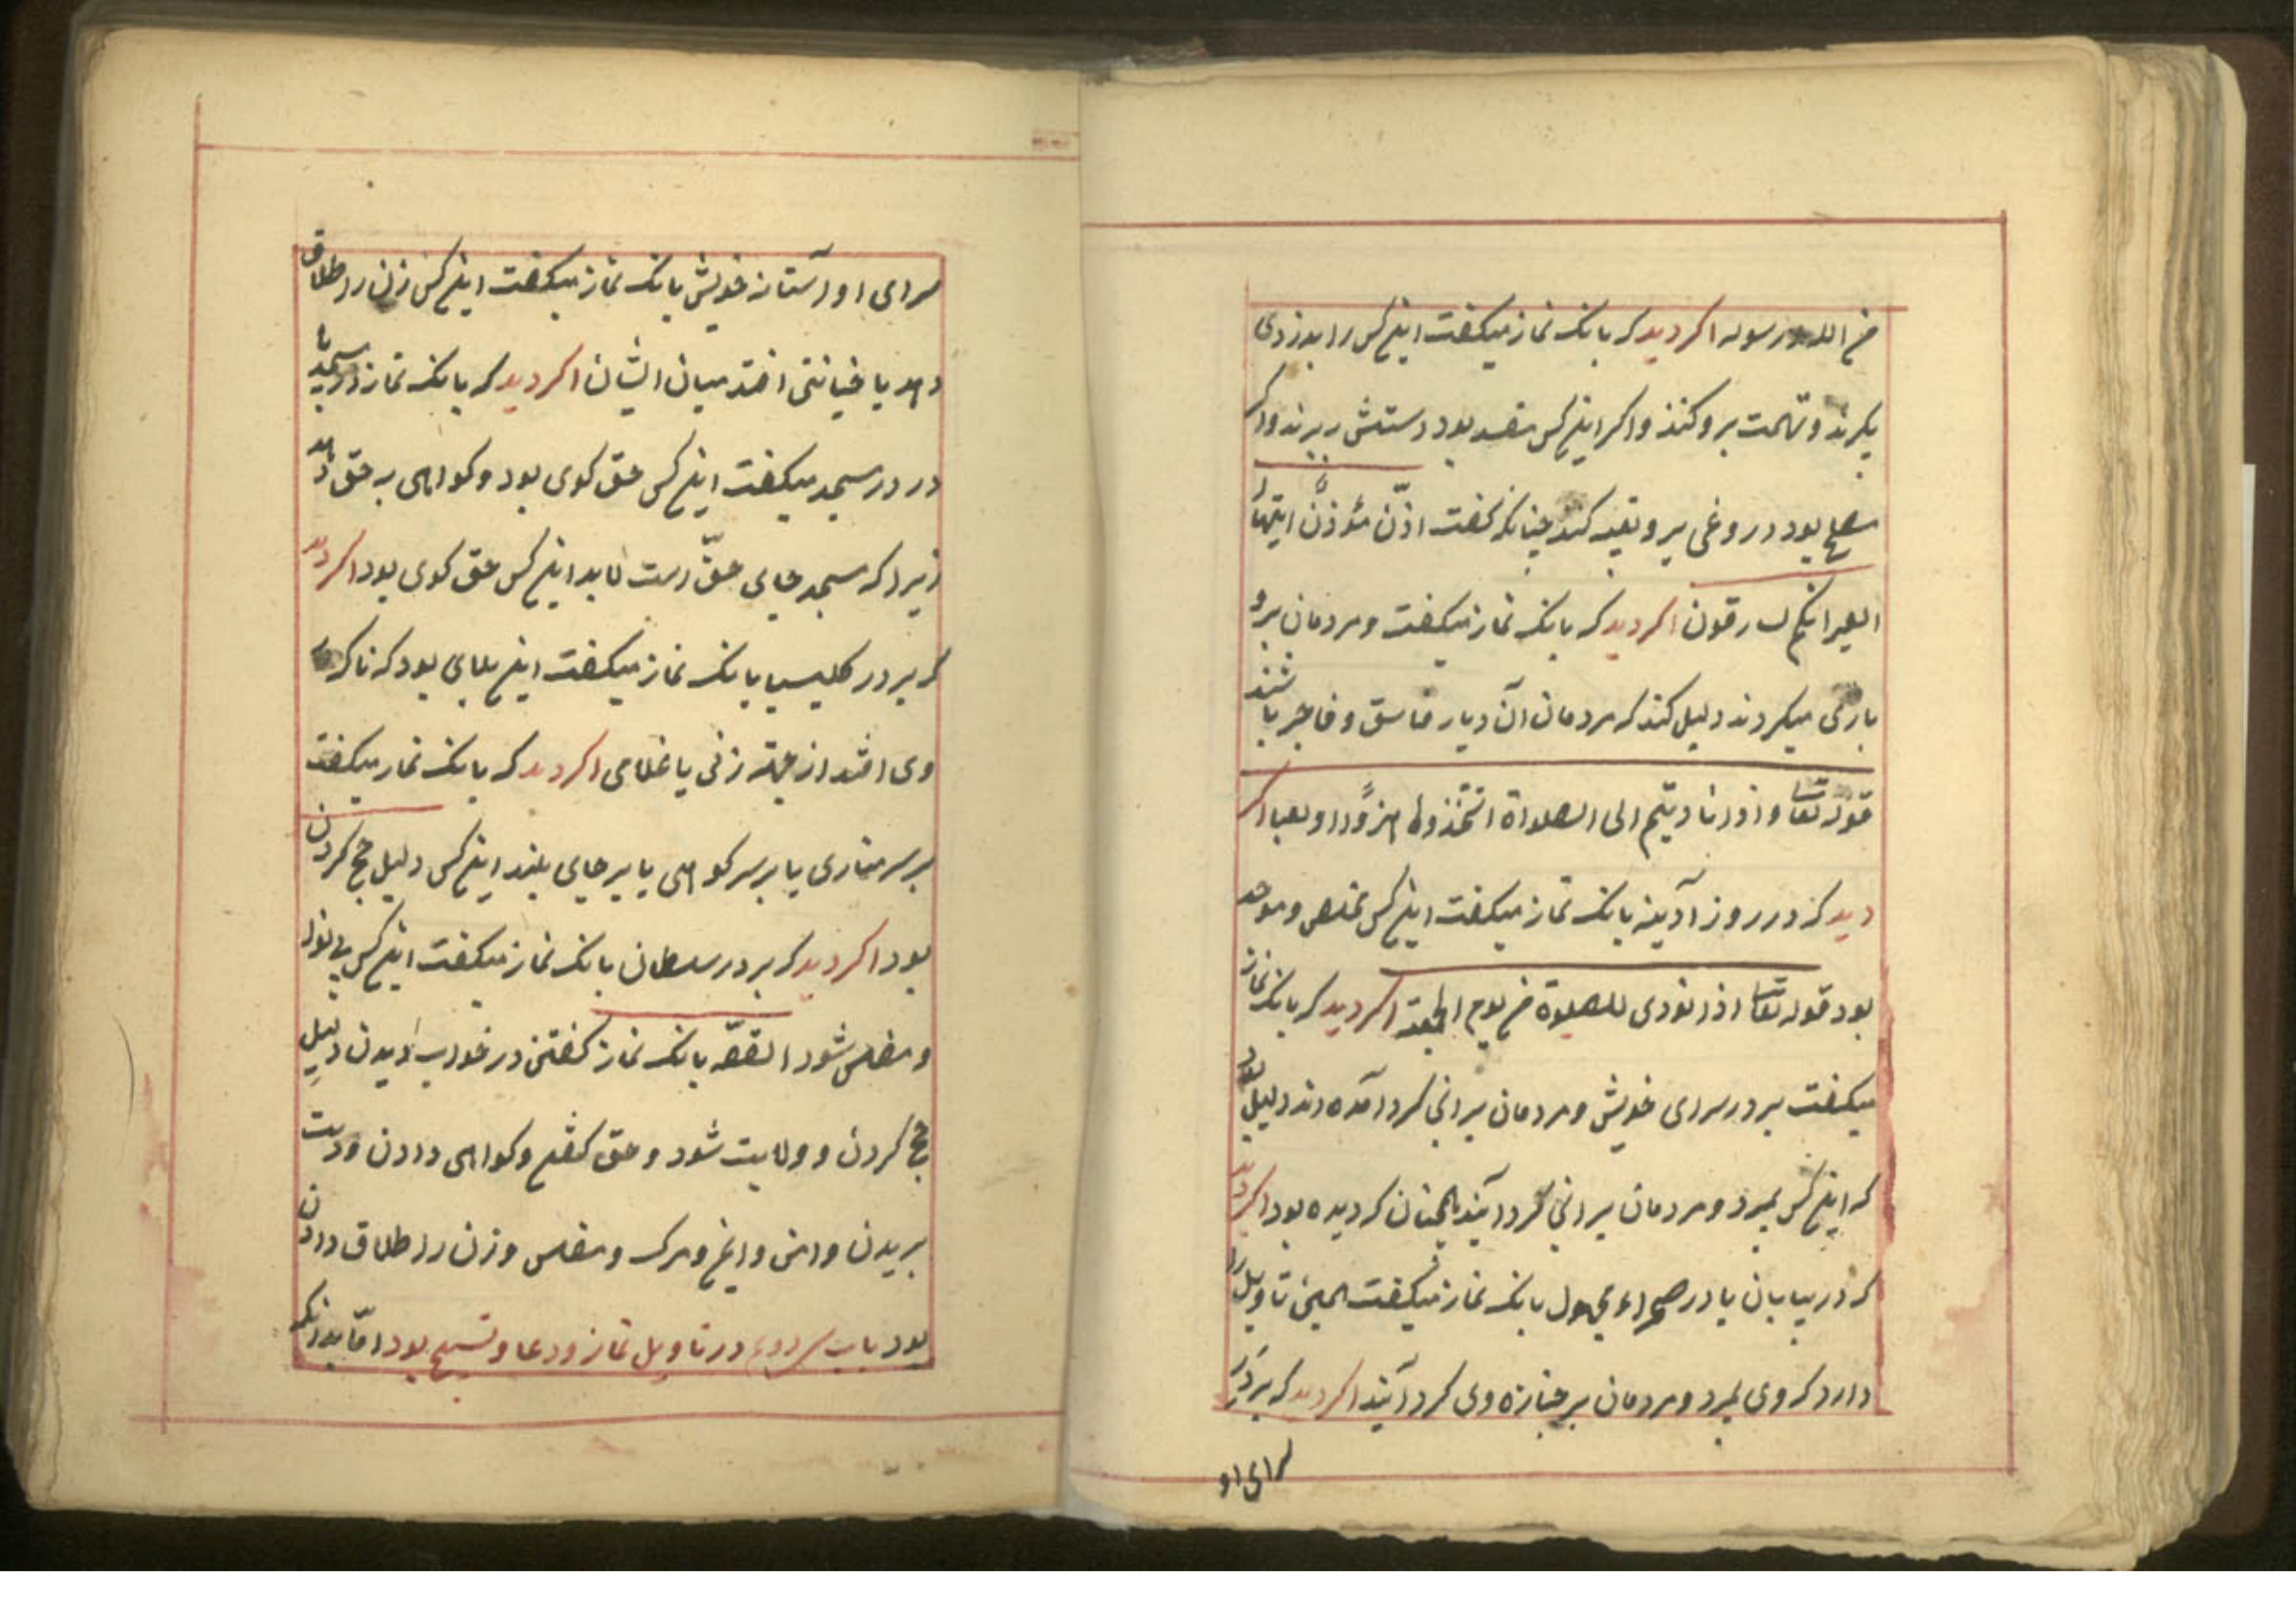 من الله ورسوله اکر دید که بانک نماز میکفت این کس را بدزدی
بکیرند و تهمت برو کنند واکر این کس مفسد بود دستش ببرند واکر
مصلح بود دروغی برو تعبیه کنند چنانکه کفت اذّن مؤذّنٌ ایتها
العیر انکم لسارقون اکر دید که بانک نماز میکفت ومردمان برو
بازی میکردند دلیل کند که مردمان آن دیار فاسق و فاجر باشند
قوله تعا واذا نادیتم الی الصلواة اتّخذوها هزوًا ولعبا اکر
دید که در روز آدینه بانک نماز میکفت این کس مخلص و موحد
بود قوله تعا اذا نودی للصلوة من یوم الجمعة اکر دید که بانک نماز
میکفت بر در سرای خویش ومردمان برانی کرد آمده اند دلیل بود
که این کس بمیرد ومردمان برانی کرد آیند همچنان کردیده بود اکر دید
که در بیابان یا در صحراء مجهول بانک نماز میکفت همین تاویل را
دارد که وی بمیرد ومردمان بر جنازه وی کرد آیند اکر دید که بر در
سرای او
سرای او آستانه خویش بانک نماز میکفت این کس زن را طلاق
دهد یا خیانتی افتد میان ایشان اکر دید که بانک نماز در مسجد یا
در در مسجد میکفت این کس حق کوی بود و کواهی به حق دهد
زیرا که مسجد جای حقّ است لابد این کس حق کوی بود اکر دید
که بر در کلیسیا بانک نماز میکفت این بلای بود که ناکاه
وی افتد از جهة زنی یا غلامی اکر دید که بانک نماز میکفت
بر سر مناری یا بر سر کوهی یا بر جای بلند این کس دلیل حج کردن
بود اکر دید که بر در سلطان بانک نماز میکفت این کس بی نوا
و مفلس شود القصّه بانک نماز کفتن در خواب دیدن دلیل
حج کردن و ولایت شود و حق کفتن و کواهی دادن و دست
بریدن و امن و ایمن و مرک و مفلس و زن را طلاق دادن
بود باب در تاویل نماز و دعا و تسبیح بود امّا بدانکه